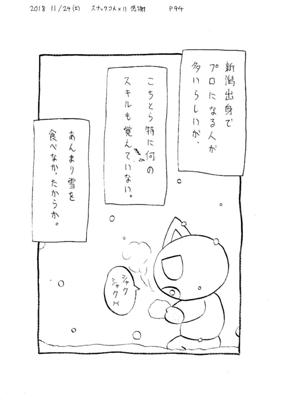 2018 11/24(土)
P94
新潟出身で
プロになる人が
多いらしいが、
こちとら特に何の
スキルも覚えていない。
あんまり雪を
食べなかったからか。
シャク
シャク